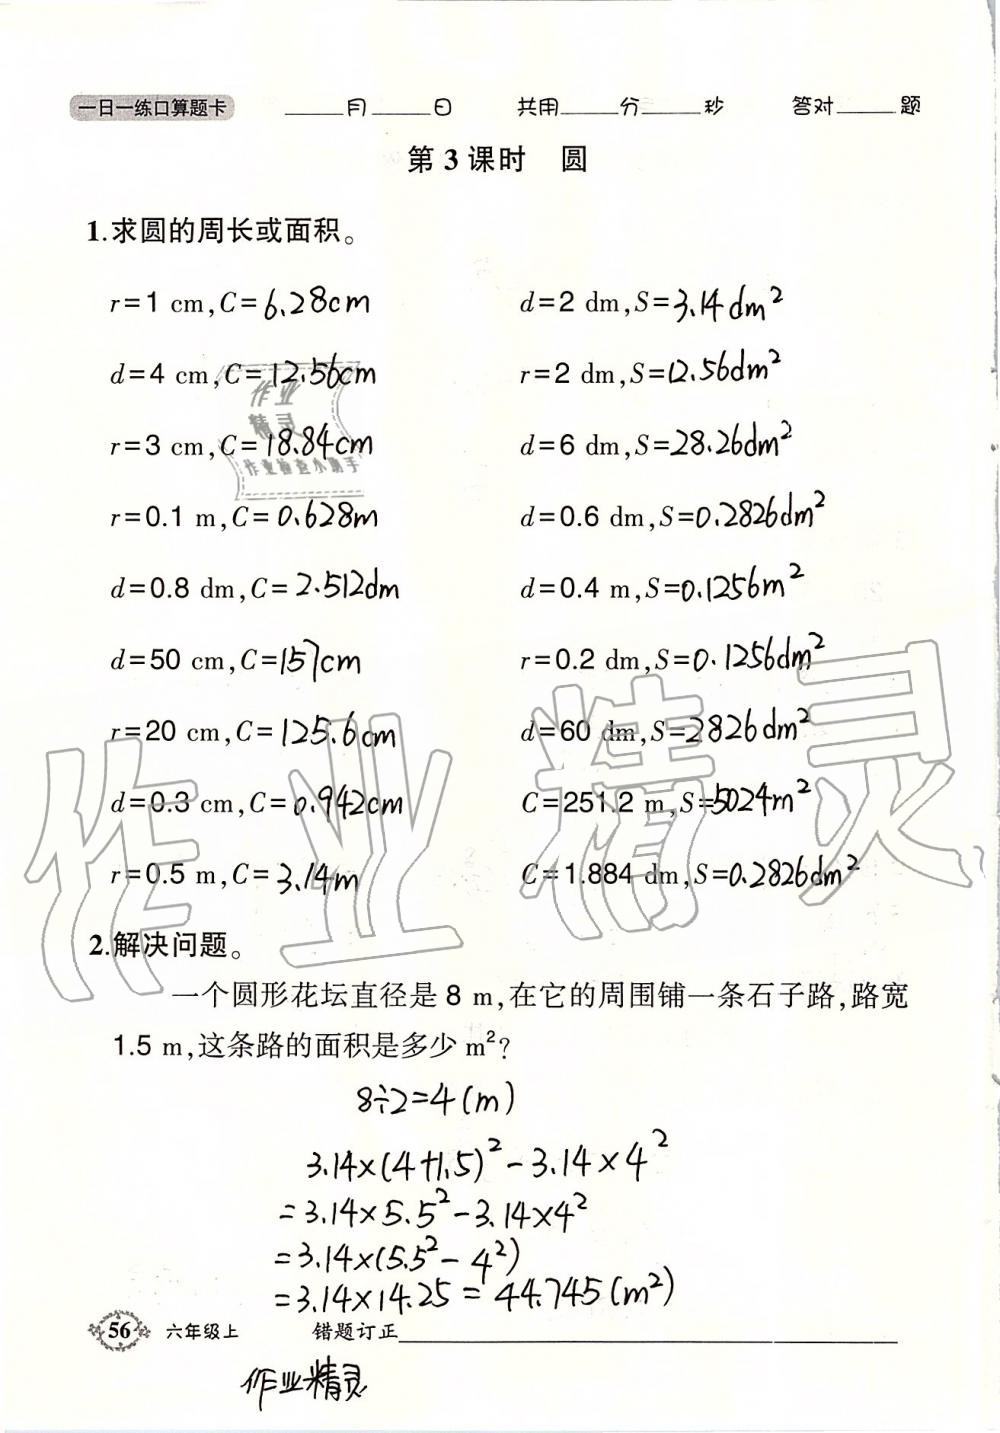 一日一练口算题卡 ______月______日 共用______分______秒 答对______题
第3课时 圆
1.求圆的周长或面积。
r=1 cm,C=6.28cm d=2 dm,S=3.14dm²
d=4 cm,C=12.56cm r=2 dm,S=12.56dm²
作业
精灵
作业检查小助手
r=3 cm,C=18.84cm d=6 dm,S=28.26dm²
r=0.1 m,C=0.628m d=0.6 dm,S=0.2826dm²
d=0.8 dm,C=2.512dm d=0.4 m,S=0.1256m²
d=50 cm,C=157cm r=0.2 dm,S=0.1256dm²
r=20 cm,C=125.6cm d=60 dm,S=2826dm²
d=0.3 cm,C=0.942cm C=251.2 m,S=5024m²
r=0.5 m,C=3.14m C=1.884 dm,S=0.2826dm²
作业精灵
2.解决问题。
一个圆形花坛直径是8 m,在它的周围铺一条石子路,路宽
1.5 m,这条路的面积是多少m²?
8÷2=4(m)
3.14×(4+1.5)²-3.14×4²
=3.14×5.5²-3.14×4²
=3.14×(5.5²-4²)
=3.14×14.25=44.745(m²)
56 六年级上 错题订正____________
作业精灵